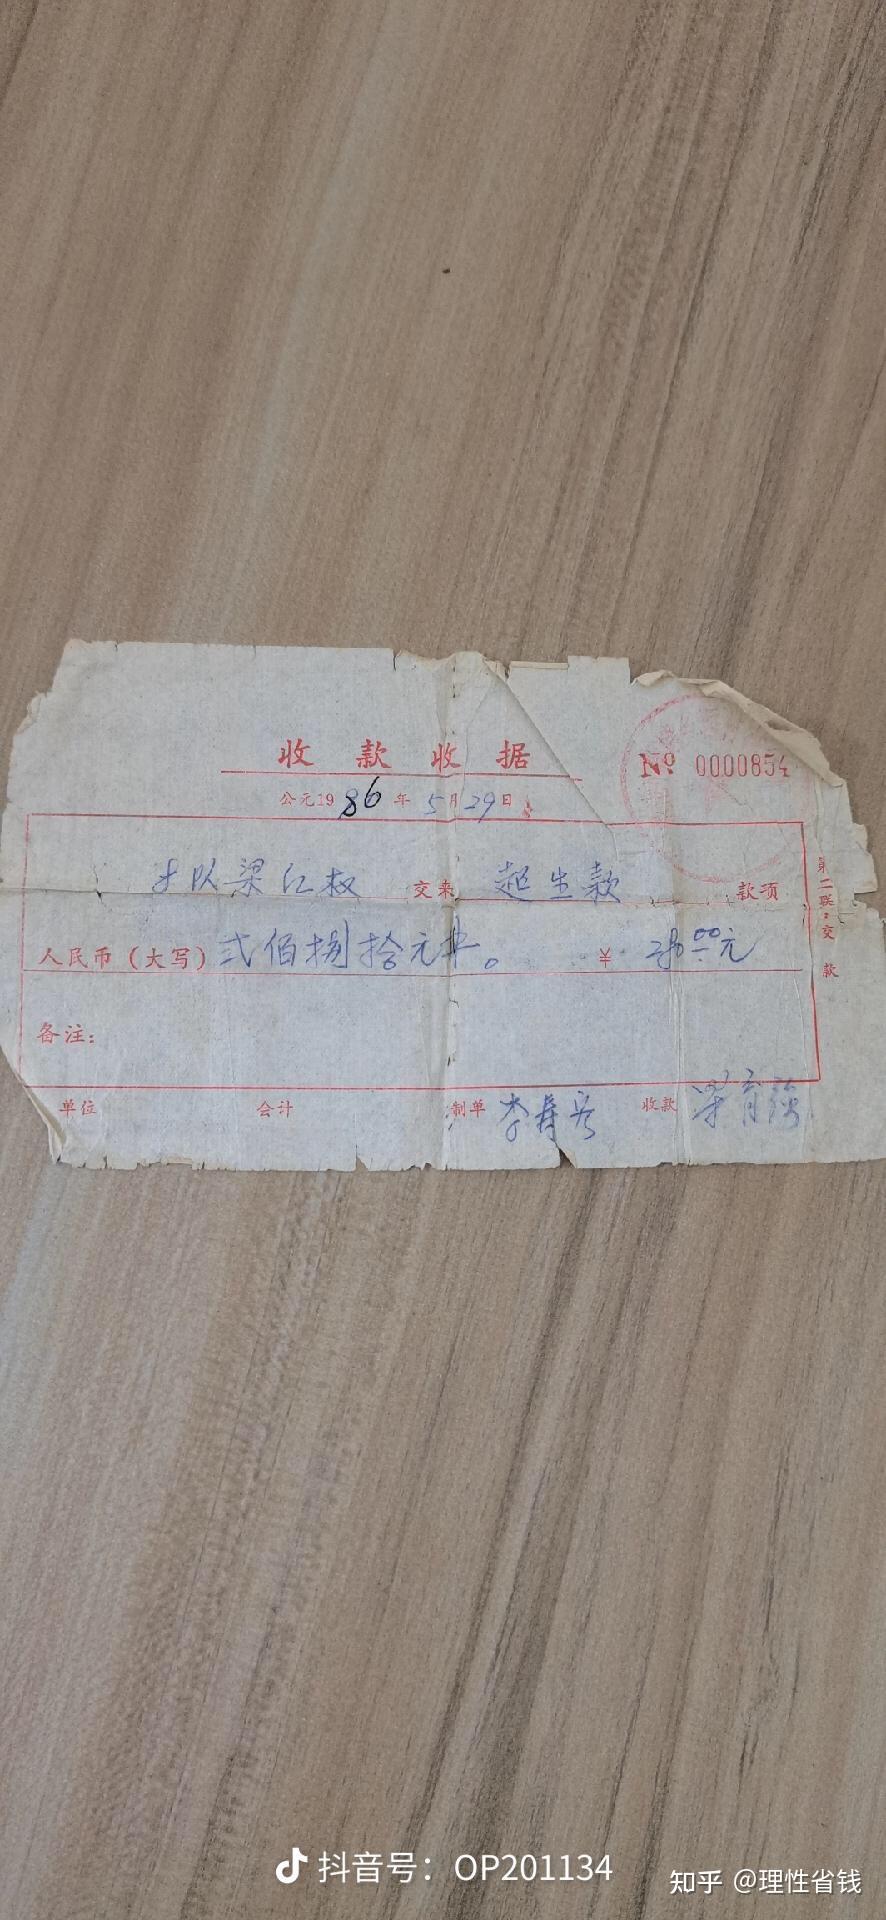 收款收据
№ 0000854
公元1986年5月29日
队梁红权 交来 超生款 款项
人民币(大写)弍佰捌拾元
¥ 280.00元
备注:
单位 会计 制单 李 收款 育强
第二联:交款
抖音号:OP201134
知乎 @理性省钱